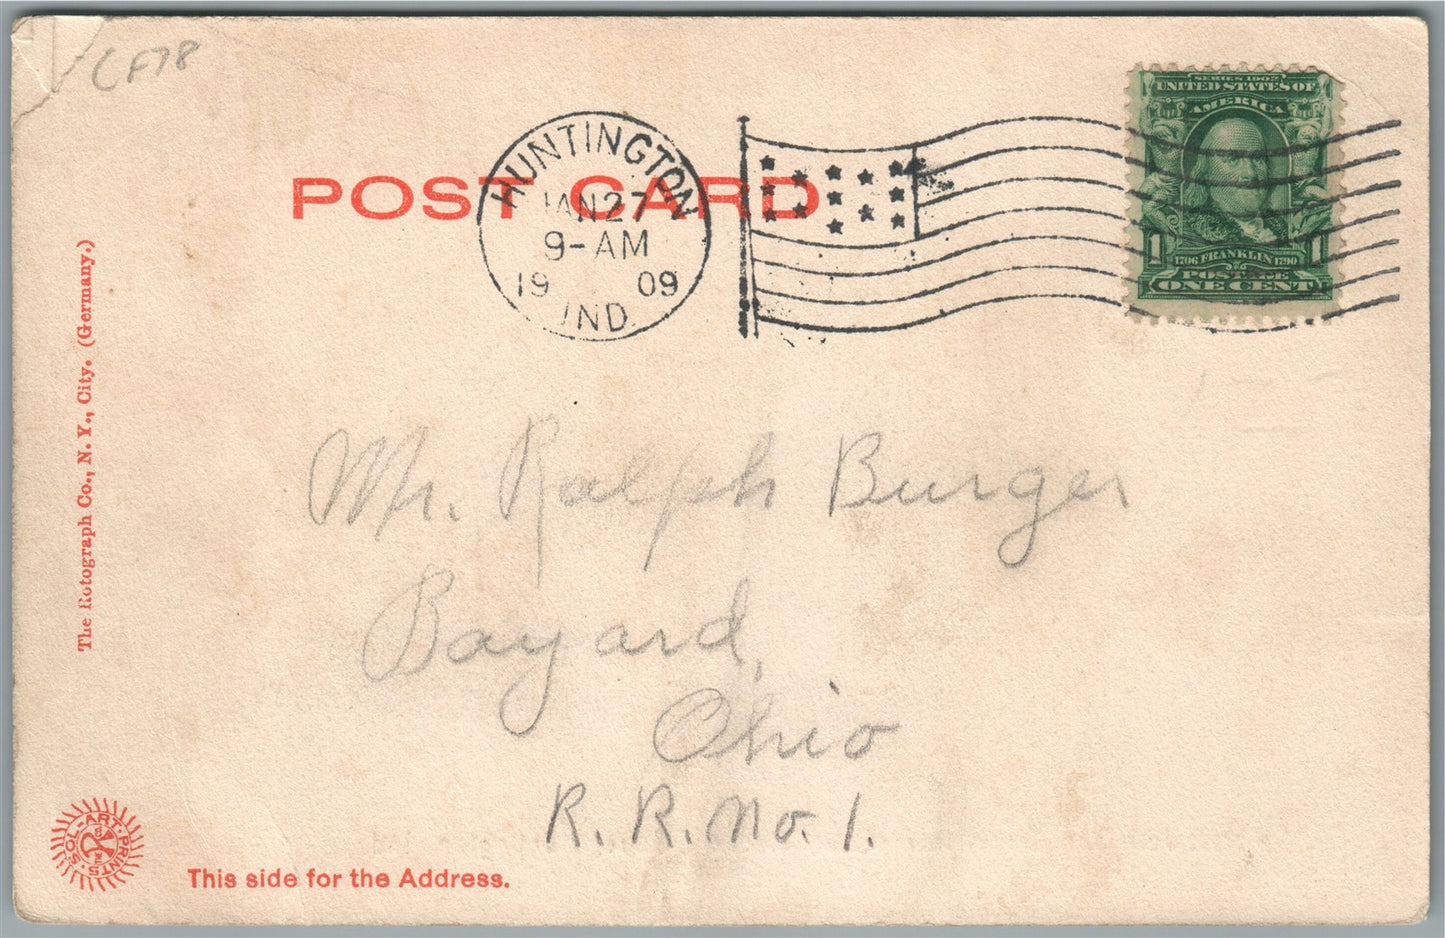 CF78
POST CARD
HUNTINGTON
JAN 27
9-AM
19 09
IND.
SERIES 1902
UNITED STATES OF
AMERICA
1 1
1706 FRANKLIN 1790
POSTAGE
ONE CENT
The Rotograph Co., N. Y., City. (Germany.)
Mr. Ralph Burger
Bayard,
Ohio
R. R. No. 1.
SOL-ART-PRINTS
This side for the Address.